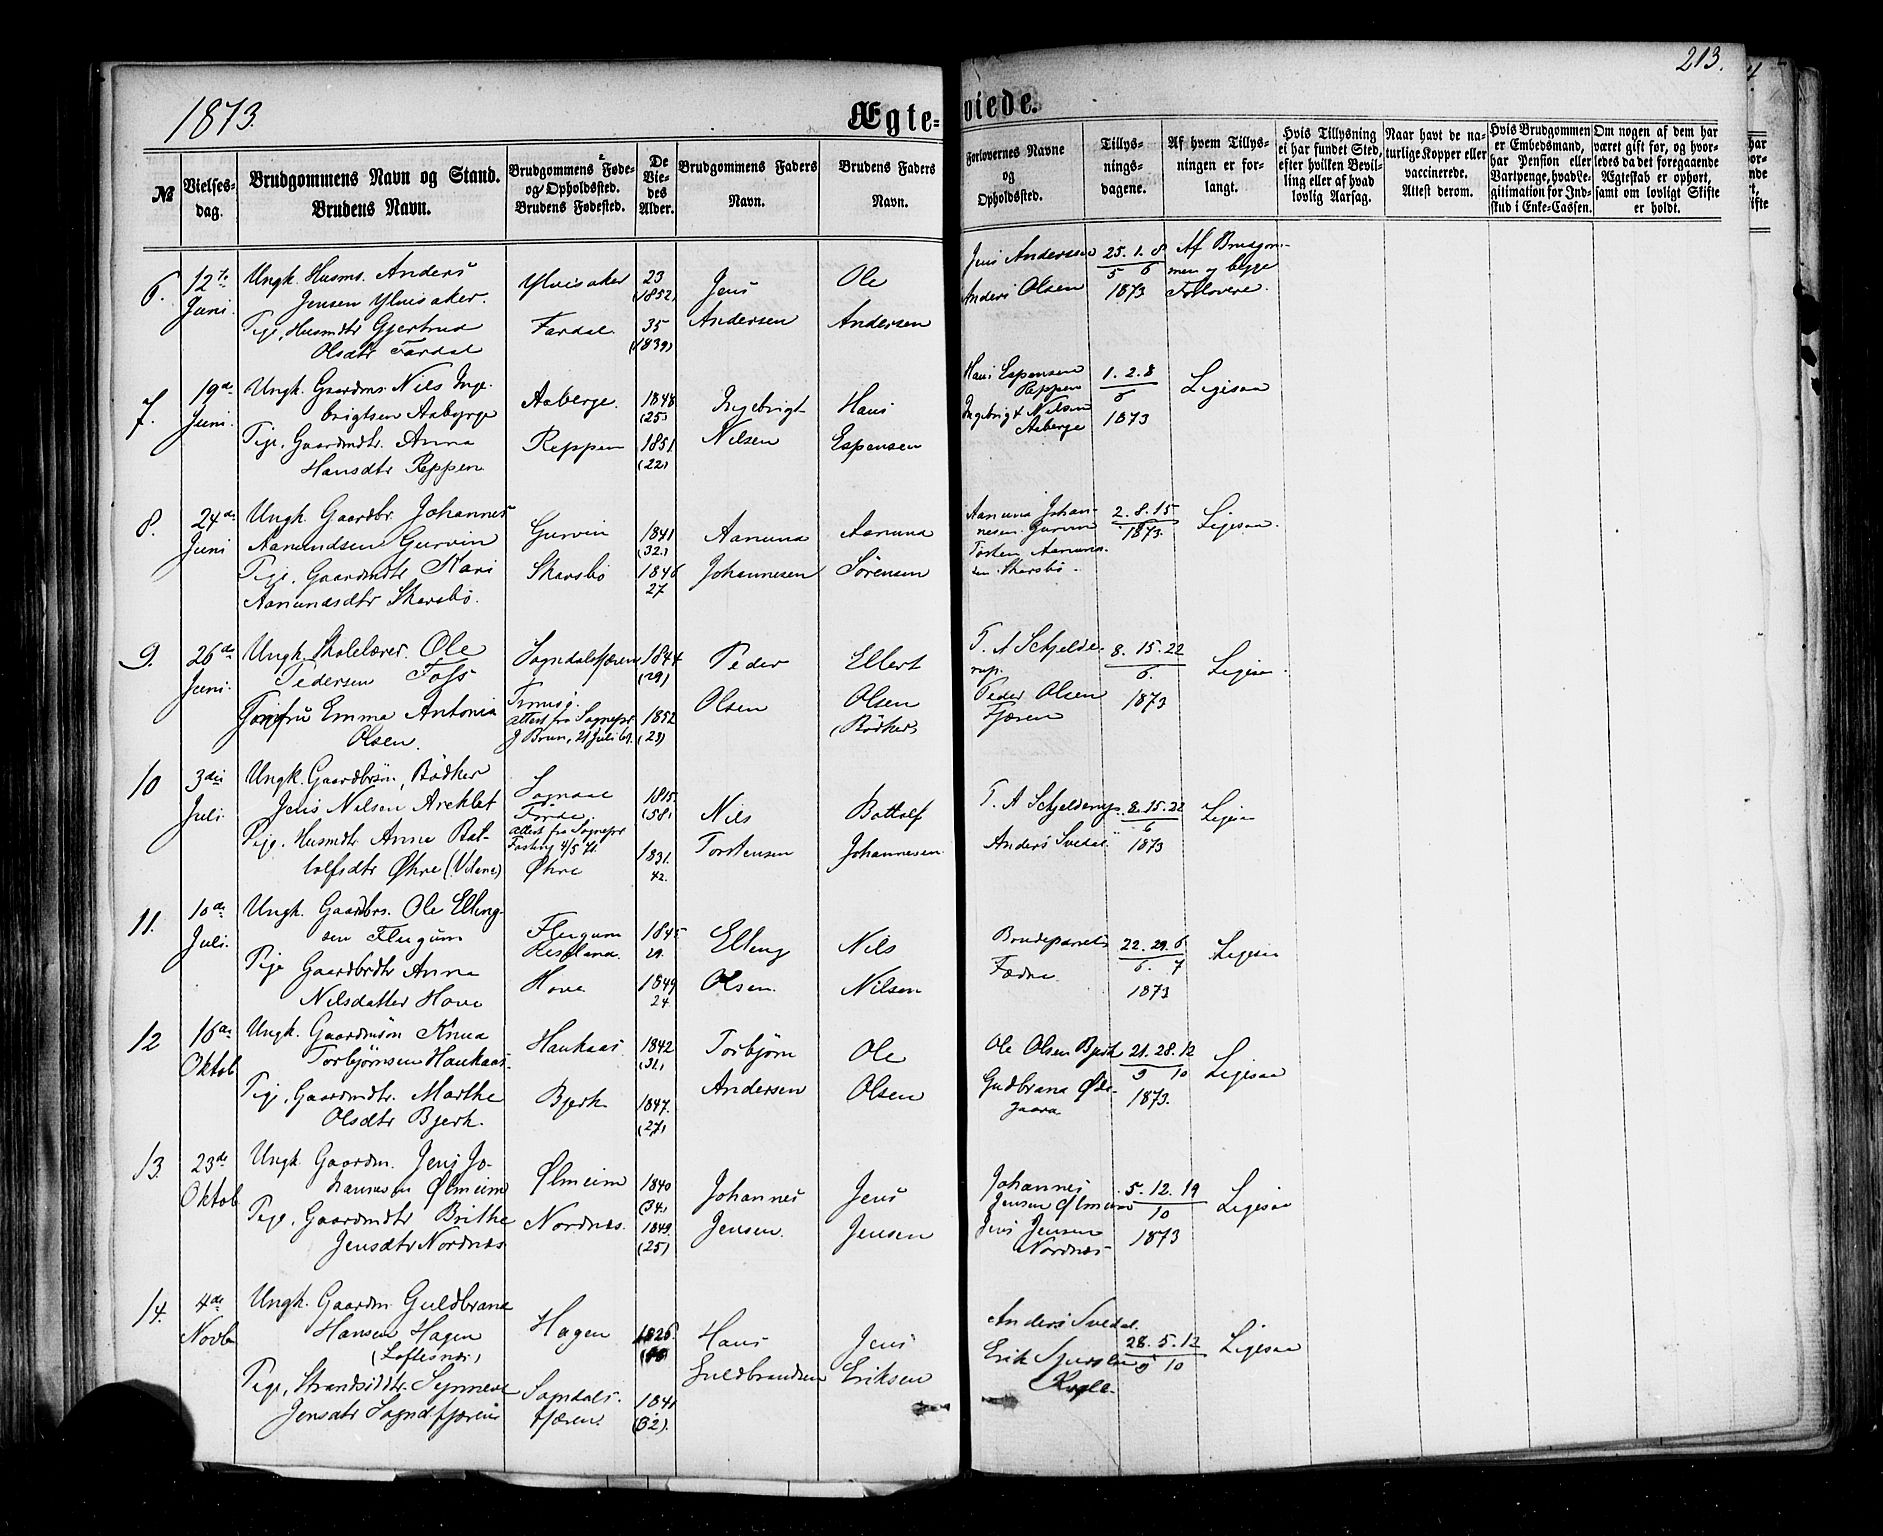 213.
1873.
Ægte=
viede.
№
Vielses-
dag.
Brudgommens Navn og Stand.
Brudens Navn.
Brudgommens Føde-
og Opholdssted.
Brudens Fødested.
De
Vie-
des
Alder.
Brudgommens Faders
Navn.
Brudens Faders
Navn.
Forlovernes Navne
og
Opholdssted.
Tillys-
nings-
dagene.
Af hvem Tillys-
ningen er for-
langt.
Hvis Tillysning
ei har fundet Sted,
efter hvilken Bevil-
ling eller af hvad
lovlig Aarsag.
Naar havt de na-
turlige Kopper eller
vaccinerede.
Attest derom.
Hvis Brudgommen
er Embedsmand,
har Pension eller
Vartpenge, hvad Le-
gitimation for Ind-
skud i Enke-Cassen.
Om nogen af dem har
været gift før, og hvor-
ledes da det foregaaende
Ægteskab er ophørt,
samt om lovligt Skifte
er holdt.
6.
12te
Juni.
Ungk. Husms. Anders
Jensen Ylvisaker.
Pige, Husmdtr Gjertrud
Olsdtr Fardal
Ylvisaker
Fardal
23
(1852)
35
(1839)
Jens
Andersen
Ole
Andersen
Jens Andersen
Anders Olsen
25. 1. 8
5 6
1873
Af Brudgom-
men og begge
Forlovere.
7.
19de
Juni.
Ungk. Gaardms. Nils Inge-
brigtsen Aaberge
Pige. Gaardmdtr. Anna
Hansdtr Reppen
Aaberge.
Reppen
1848
(25)
1851
(22)
Ingebrigt
Nilsen
Hans
Espensen
Hans Espensen
Reppen
Ingebrigt Nilsen
Aaberge
1. 2. 8
6
1873
Ligesaa
8.
24de
Juni
Ungk. Gaardbr. Johannes
Aamundsen Gurvin
Pige. Gaardmdtr Kari
Aamundsdtr Skarsbø.
Gurvin
Skarsbø
1841
(32)
1846
27
Aamund
Johannesen
Aamund
Sørensen
Aamund Johan-
nesen Gurvin
Torsten Aamund-
sen Skarsbø.
2. 8. 15
1873.
Ligesaa.
9.
26de
Juni.
Ungk. Skolelærer. Ole
Pedersen Foss
Jomfru Emma Antonia
Olsen.
Sogndalsfjæren
Tromsø.
attest fra Sognepr
J Brun, 21 Juli 69.
1844
(29)
1852
(21)
Peder
Olsen
Ellert
Olsen
(Bødker)
T. A Schjelde-
rup.
Peder Olsen
Fjæren
8. 15. 22
6.
1873
Ligesaa.
10
3die
Juli.
Ungk. Gaardbrsøn, Bødker
Jens Nilsen Areklet
Pige. Husmdtr Anna Bot-
tolfsdtr Øhre
Sogndal
Førde.
attest fra Sognepr
Fasting 4/5 71.
Øhre
1815.
(58)
1831.
42.
Nils
Torstensen
Bottolf
Johannesen
T. A Schjelderup
Anders Svedal
8. 15. 22
6
1873
Ligesaa
11.
10de
Juli.
Ungk. Gaardbrs. Ole Elling-
sen Flugum
Pige Gaardbrdtr Anna
Nilsdatter Hove
Flugum
Hove
1845
1849
24
Elling
Olsen.
Nils
Nilsen
Brudeparrets
Fædre
22. 29. 6
6. 7
1873
Ligesaa
12
16de
Oktob
Ungk. Gaardmsøn Knud
Torbjørnsen Haukaas.
Pige, Gaardmdtr. Marthe
Olsdtr Bjerk.
Haukaas
Bjerk
1842
(31)
1847.
(27)
Torbjørn
Andersen
Ole
Olsen
Ole Olsen Bjerk
Gudbrand Øde-
gaard
21. 28. 12
9 10
1873.
Ligesaa
13.
23de
Oktob
Ungk. Gaardm. Jens Jo-
hannesen Ølmeim
Pige, Gaardmdtr Brithe
Jensdtr Nordnæs
Ølmeim
Nordnæs.
1840
(34)
1849.
(25)
Johannes
Jensen.
Jens
Jensen
Johannes
Jensen Ølmeim
Jens Jensen
Nordnæs
5. 12. 19
10
1873
Ligesaa
14.
4de
Novbr
Ungk. Gaardm. Guldbrand
Hansen Hagen
(Loftesnæs)
Pige, Strandsiddtr. Synneve
Jensdtr Sogndfjæren
Hagen
Sogndals-
fjæren.
1826.
1841
(32).
Hans
Guldbrandsen
Jens
Eriksen
Anders Svedal.
Erik
28. 5. 12
9 10
Ligesaa